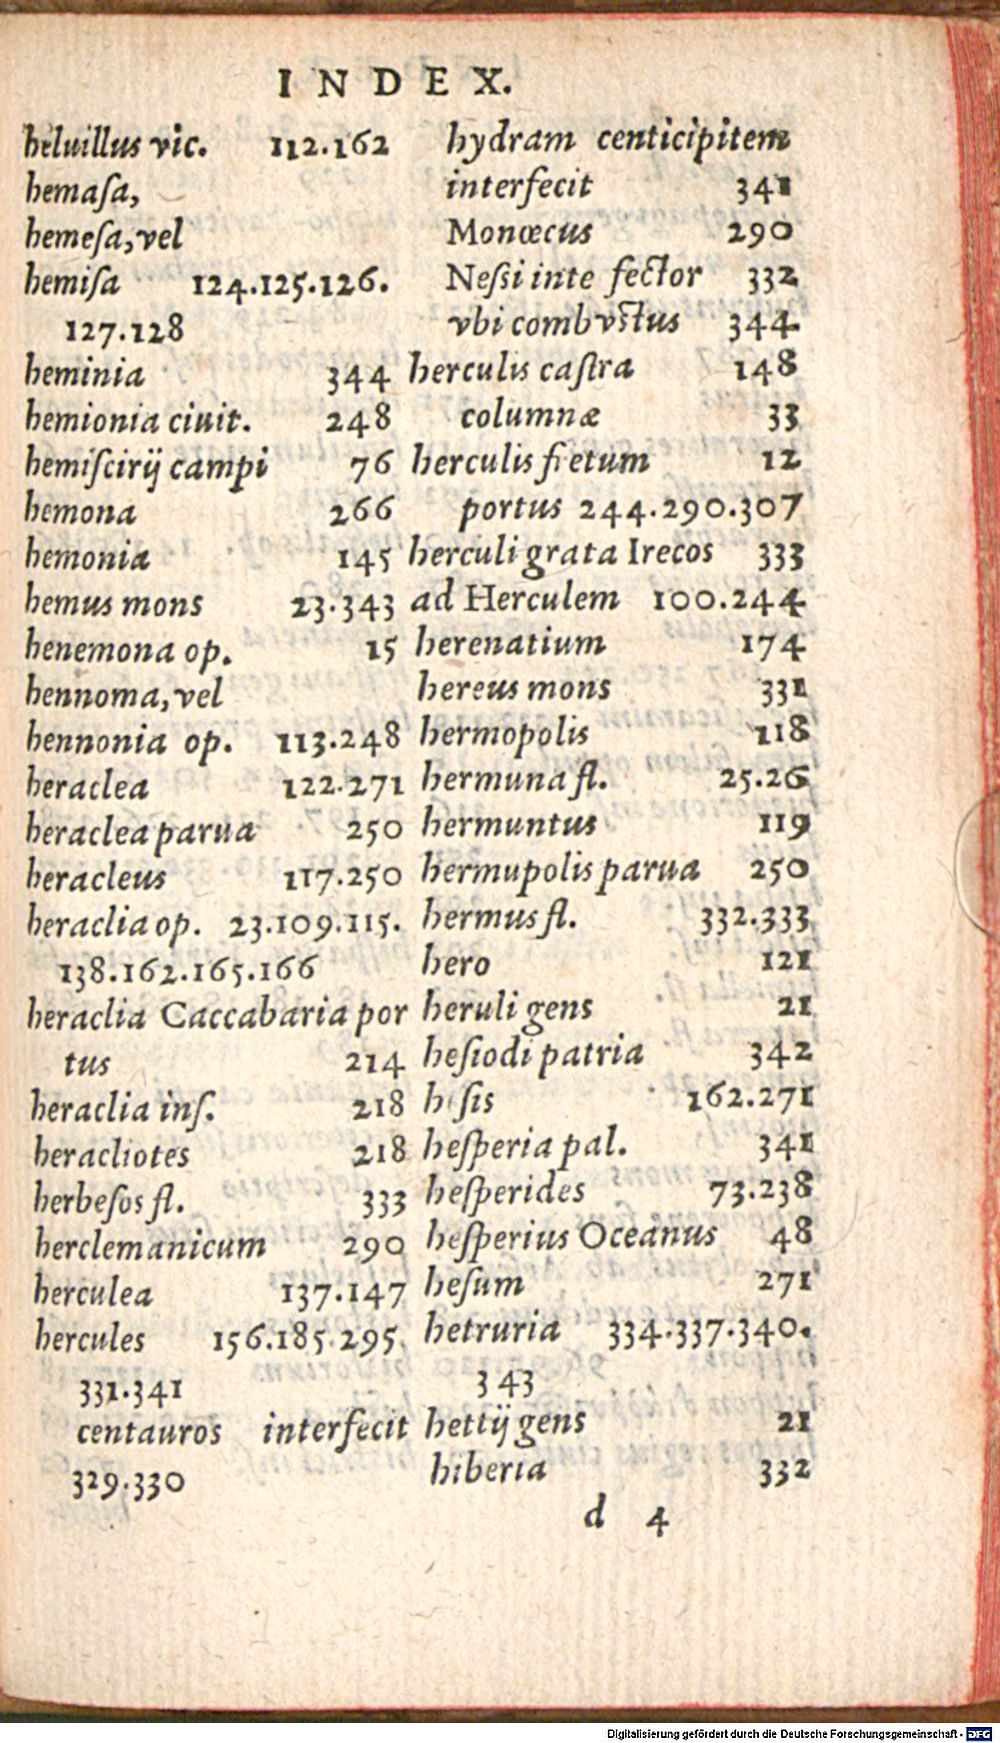 INDEX.
heluillus vic. 112.162
hemaſa,
hemeſa, vel
hemiſa 124.125.126.
127.128
heminia 344
hemionia ciuit. 248
hemiſcirij campi 76
hemona 266
hemonia 145
hemus mons 23.343
henemona op. 15
hennoma, vel
hennonia op. 113.248
heraclea 122.271
heraclea parua 250
heracleus 117.250
heraclia op. 23.109.115.
138.162.165.166
heraclia Caccabaria por
tus 214
heraclia inſ. 218
heracliotes 218
herbeſos fl. 333
herclemanicum 290
herculea 137.147
hercules 156.185.295.
331.341
centauros interfecit
329.330
hydram centicipitem
interfecit 341
Monœcus 290
Neſſi inte fector 332
vbi combvſtus 344
herculis caſtra 148
columnæ 33
herculis fretum 12
portus 244.290.307
herculi grata Irecos 333
ad Herculem 100.244
herenatium 174
hereus mons 331
hermopolis 118
hermuna fl. 25.26
hermuntus 119
hermupolis parua 250
hermus fl. 332.333
hero 121
heruli gens 21
heſiodi patria 342
heſis 162.271
heſperia pal. 341
heſperides 73.238
heſperius Oceanus 48
heſum 271
hetruria 334.337.340.
343
hettij gens 21
hiberia 332
d 4
Digitalisierung gefördert durch die Deutsche Forschungsgemeinschaft - DFG